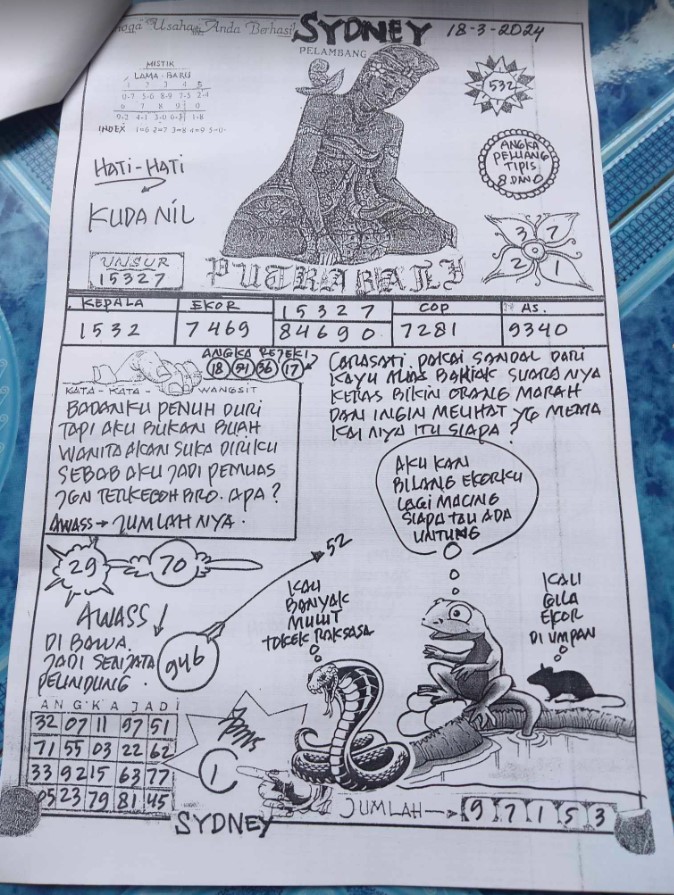 Usaha Anda Berhasil SYDNEY 18-3-2024
PELAMBANG
MISTIK
LAMA : BARU
1 2 3 4 5
0-7 5-6 8-9 7-3 2-4
6 7 8 9 0
9-8 4-1 3-0 6-5 1-8
INDEX 1=6 2=7 3=8 4=9 5=0
HATI-HATI
KUDA NIL
532
ANGKA
PELUANG
TIPIS
8 DAN 0
3 7
0
2 1
UNSUR
15327
PUTRA BALI
KEPALA EKOR 15327 COP AS.
1532 7469 84690 7281 9340
ANGKA REJEKI
18 31 36 17
KATA - KATA - WANGSIT
BADANKU PENUH DURI
TAPI AKU BUKAN BUAH
WANITA AKAN SUKA DIRIKU
SEBAB AKU JADI PEMUAS
JGN TERKECOH BRO. APA?
AWASS → JUMLAHNYA.
CARASATI. PAKAI SANDAL DARI
KAYU ALIAS BAKIAK SUARANYA
KERAS BIKIN ORANG MARAH
DAN INGIN MELIHAT YG MEMA
KAINYA ITU SIAPA?
AKU KAN
BILANG EKORKU
LAGI MACING
SIAPA TAU ADA
UNTUNG
29 70
52
AWASS
DI BAWA.
JADI SENJATA
PELINDUNG.
946
KAU
BANYAK
MULUT
TOKEK RAKSASA
KALI
GILA
EKOR
DI UMPAN
ANGKA JADI
32 07 11 97 51
71 55 03 22 62
33 92 15 63 77
05 23 79 81 45
1
JUMLAH → 9 7 1 5 3
SYDNEY